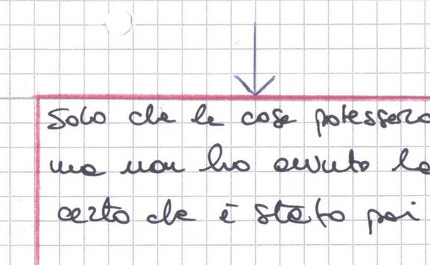 Solo che le cose potessero
ma non ho avuto la
certo che è stato poi